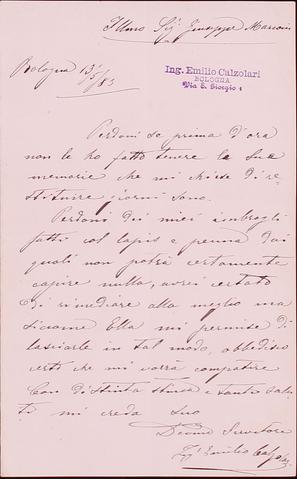 Illmo Sig. Giuseppe
Bologna 13/5/83
Ing. Emilio Calzolari
BOLOGNA
Via S. Giorgio 1
Perdoni se prima d'ora
non le ho fatto tenere le Sue
memorie che mi chiese di re
stituire giorni sono.
Perdoni dei miei imbrogli
fatti col lapis e penna dai
quali non potrà certamente
capire nulla, avrei cercato
di rimediare alla meglio ma
siccome Ella mi permise di
lasciarle in tal modo, obbedisco
certo che mi vorrà compatire
Con distinta stima e tanti salu
ti mi creda Suo
Devmo Servitore
Ing. Emilio Calzolari